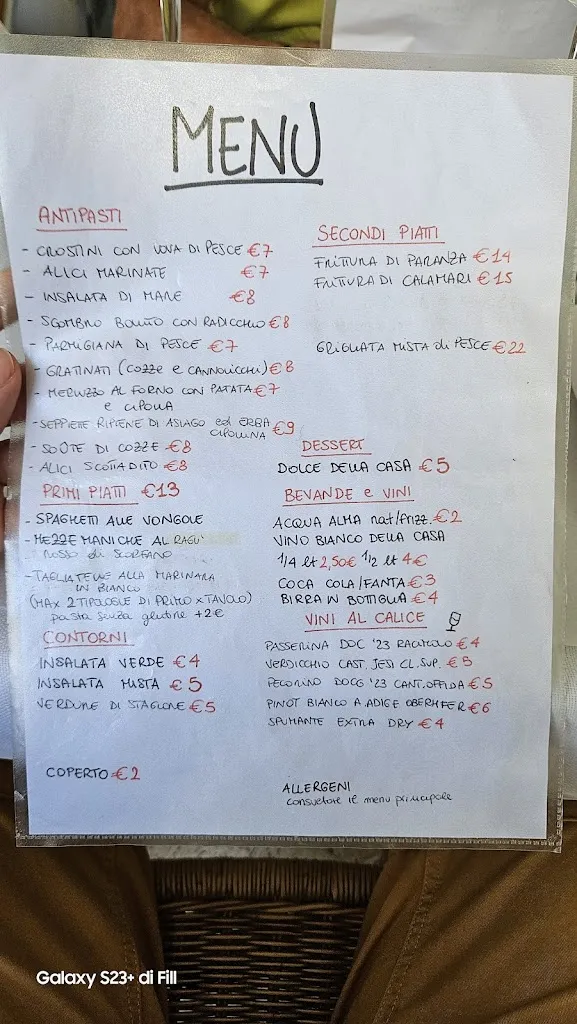 MENU
ANTIPASTI
- CROSTINI CON UOVA DI PESCE €7
- ALICI MARINATE €7
- INSALATA DI MARE €8
- SGOMBRO BOLLITO CON RADICCHIO €8
- PARMIGIANA DI PESCE €7
- GRATINATI (COZZE E CANNOLICCHI) €8
- MERLUZZO AL FORNO CON PATATA €7
E CIPOLLA
- SEPPIETE RIPIENE DI ASIAGO ed ERBA
CIPOLLINA €9
- SOUTÈ DI COZZE €8
- ALICI SCOTTADITO €8
PRIMI PIATTI €13
- SPAGHETTI ALLE VONGOLE
- MEZZE MANICHE AL RAGU'
rosso di SCORFANO
- TAGLIATELLE ALLA MARINARA
IN BIANCO
(MAX 2 TIPOLOGIE DI PRIMO x TAVOLO)
pasta senza glutine +2€
CONTORNI
INSALATA VERDE €4
INSALATA MISTA €5
VERDURE DI STAGIONE €5
COPERTO €2
SECONDI PIATTI
FRITTURA DI PARANZA €14
FRITTURA DI CALAMARI €15
GRIGLIATA MISTA di PESCE €22
DESSERT
DOLCE DELLA CASA €5
BEVANDE e VINI
ACQUA ALMA nat/frizz. €2
VINO BIANCO DELLA CASA
1/4 lt 2,50€ 1/2 lt 4€
COCA COLA/FANTA €3
BIRRA IN BOTTIGLIA €4
VINI AL CALICE
PASSERINA DOC '23 €4
VERDICCHIO CAST. JESI CL. SUP. €5
PECORINO DOCG '23 CANT. OFFIDA €5
PINOT BIANCO A. ADIGE €6
SPUMANTE EXTRA DRY €4
ALLERGENI
consultare il menu principale
Galaxy S23+ di Fill